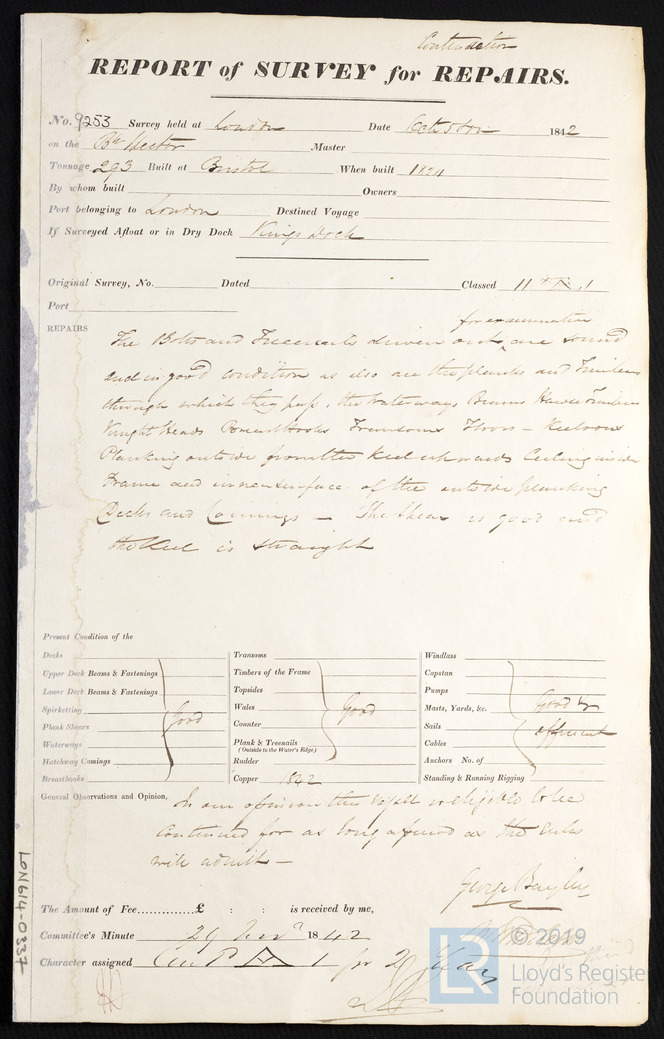 Continuation
REPORT of SURVEY for REPAIRS.
No. 9253 Survey held at London Date 1842
on the Bk Hector Master
Tonnage 293 Built at Bristol When built 1824
By whom built Owners
Port belonging to London Destined Voyage
If Surveyed Afloat or in Dry Dock Kings Dock
Original Survey, No. Dated Classed 1
Port
REPAIRS
for examination
The Bolts and Treenails driven out are sound
and in good condition as also are the planks and Timbers
through which they pass, the Waterways Beams Hawse Timbers
Knight Heads Breast Hooks Transoms Floors - Keelsons
Planking outside from the Keel upwards Ceiling inside
Frame and inner surface of the outside planking
Decks and Comings - The Shear is good and
the Keel is straight
Present Condition of the
Decks
Upper Deck Beams & Fastenings
Lower Deck Beams & Fastenings
Spirketting
Plank Shears
Waterways
Hatchway Comings
Breasthooks
Good
Transoms
Timbers of the Frame
Topsides
Wales
Counter
Plank & Treenails
(Outside to the Water's Edge)
Rudder
Copper 1842
Good
Windlass
Capstan
Pumps
Masts, Yards, &c.
Sails
Cables
Anchors No. of
Standing & Running Rigging
Good &
efficient
General Observations and Opinion, In our opinion this vessel is eligible to be
continued for as long a period as the rules
will admit -
George Bayley
The Amount of Fee..............£ : : is received by me,
Committee's Minute 29 Novr 1842
Character assigned Cont A 1 for Years
LON614-0337
© 2019
LR
Lloyd's Register
Foundation